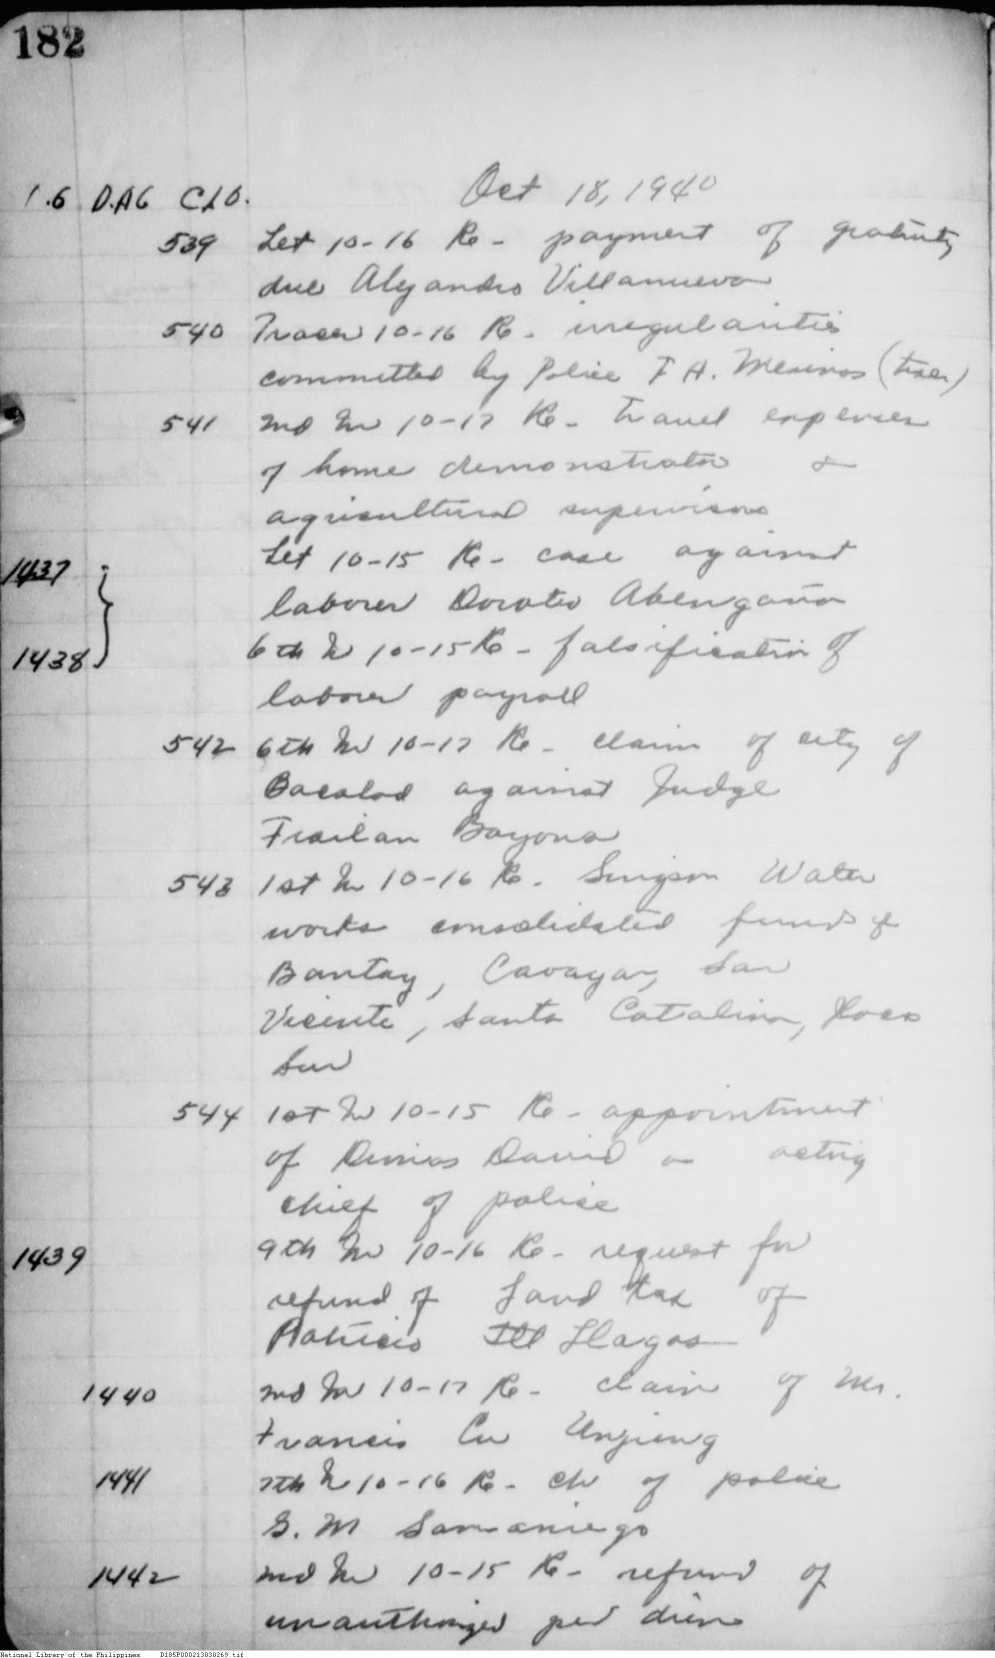 182
Oct 18, 1940
1.6 D.AG CLD.
539 Let 10-16 Re - payment of gratuity
due Alejandro Villanueva
540 Tracer 10-16 Re - irregularities
committed by Police F A.
541 2nd In 10-17 Re - travel expenses
of home demonstrator &
agricultural supervisors
1437 Let 10-15 Re - case against
laborer Doroteo Abengaña
1438 6th In 10-15 Re - falsification of
laborer payroll
542 6th In 10-17 Re - claim of city of
Bacolod against Judge
Froilan Bayona
543 1st In 10-16 Re - Singson Water
works consolidated fund of
Bantay, Caoayan, San
Vicente, Santa Catalina, Ilocos
Sur
544 1st In 10-15 Re - appointment
of Dimas David as acting
chief of police
1439 9th In 10-16 Re - request for
refund of Land tax of
Patricio Llagas
1440 2nd In 10-17 Re - claim of Mr.
Francis Cu Unjieng
1441 7th In 10-16 Re - ch of police
G. M Samaniego
1442 2nd In 10-15 Re - refund of
unauthorized per diem
National Library of the Philippines D185P000213030269.tif